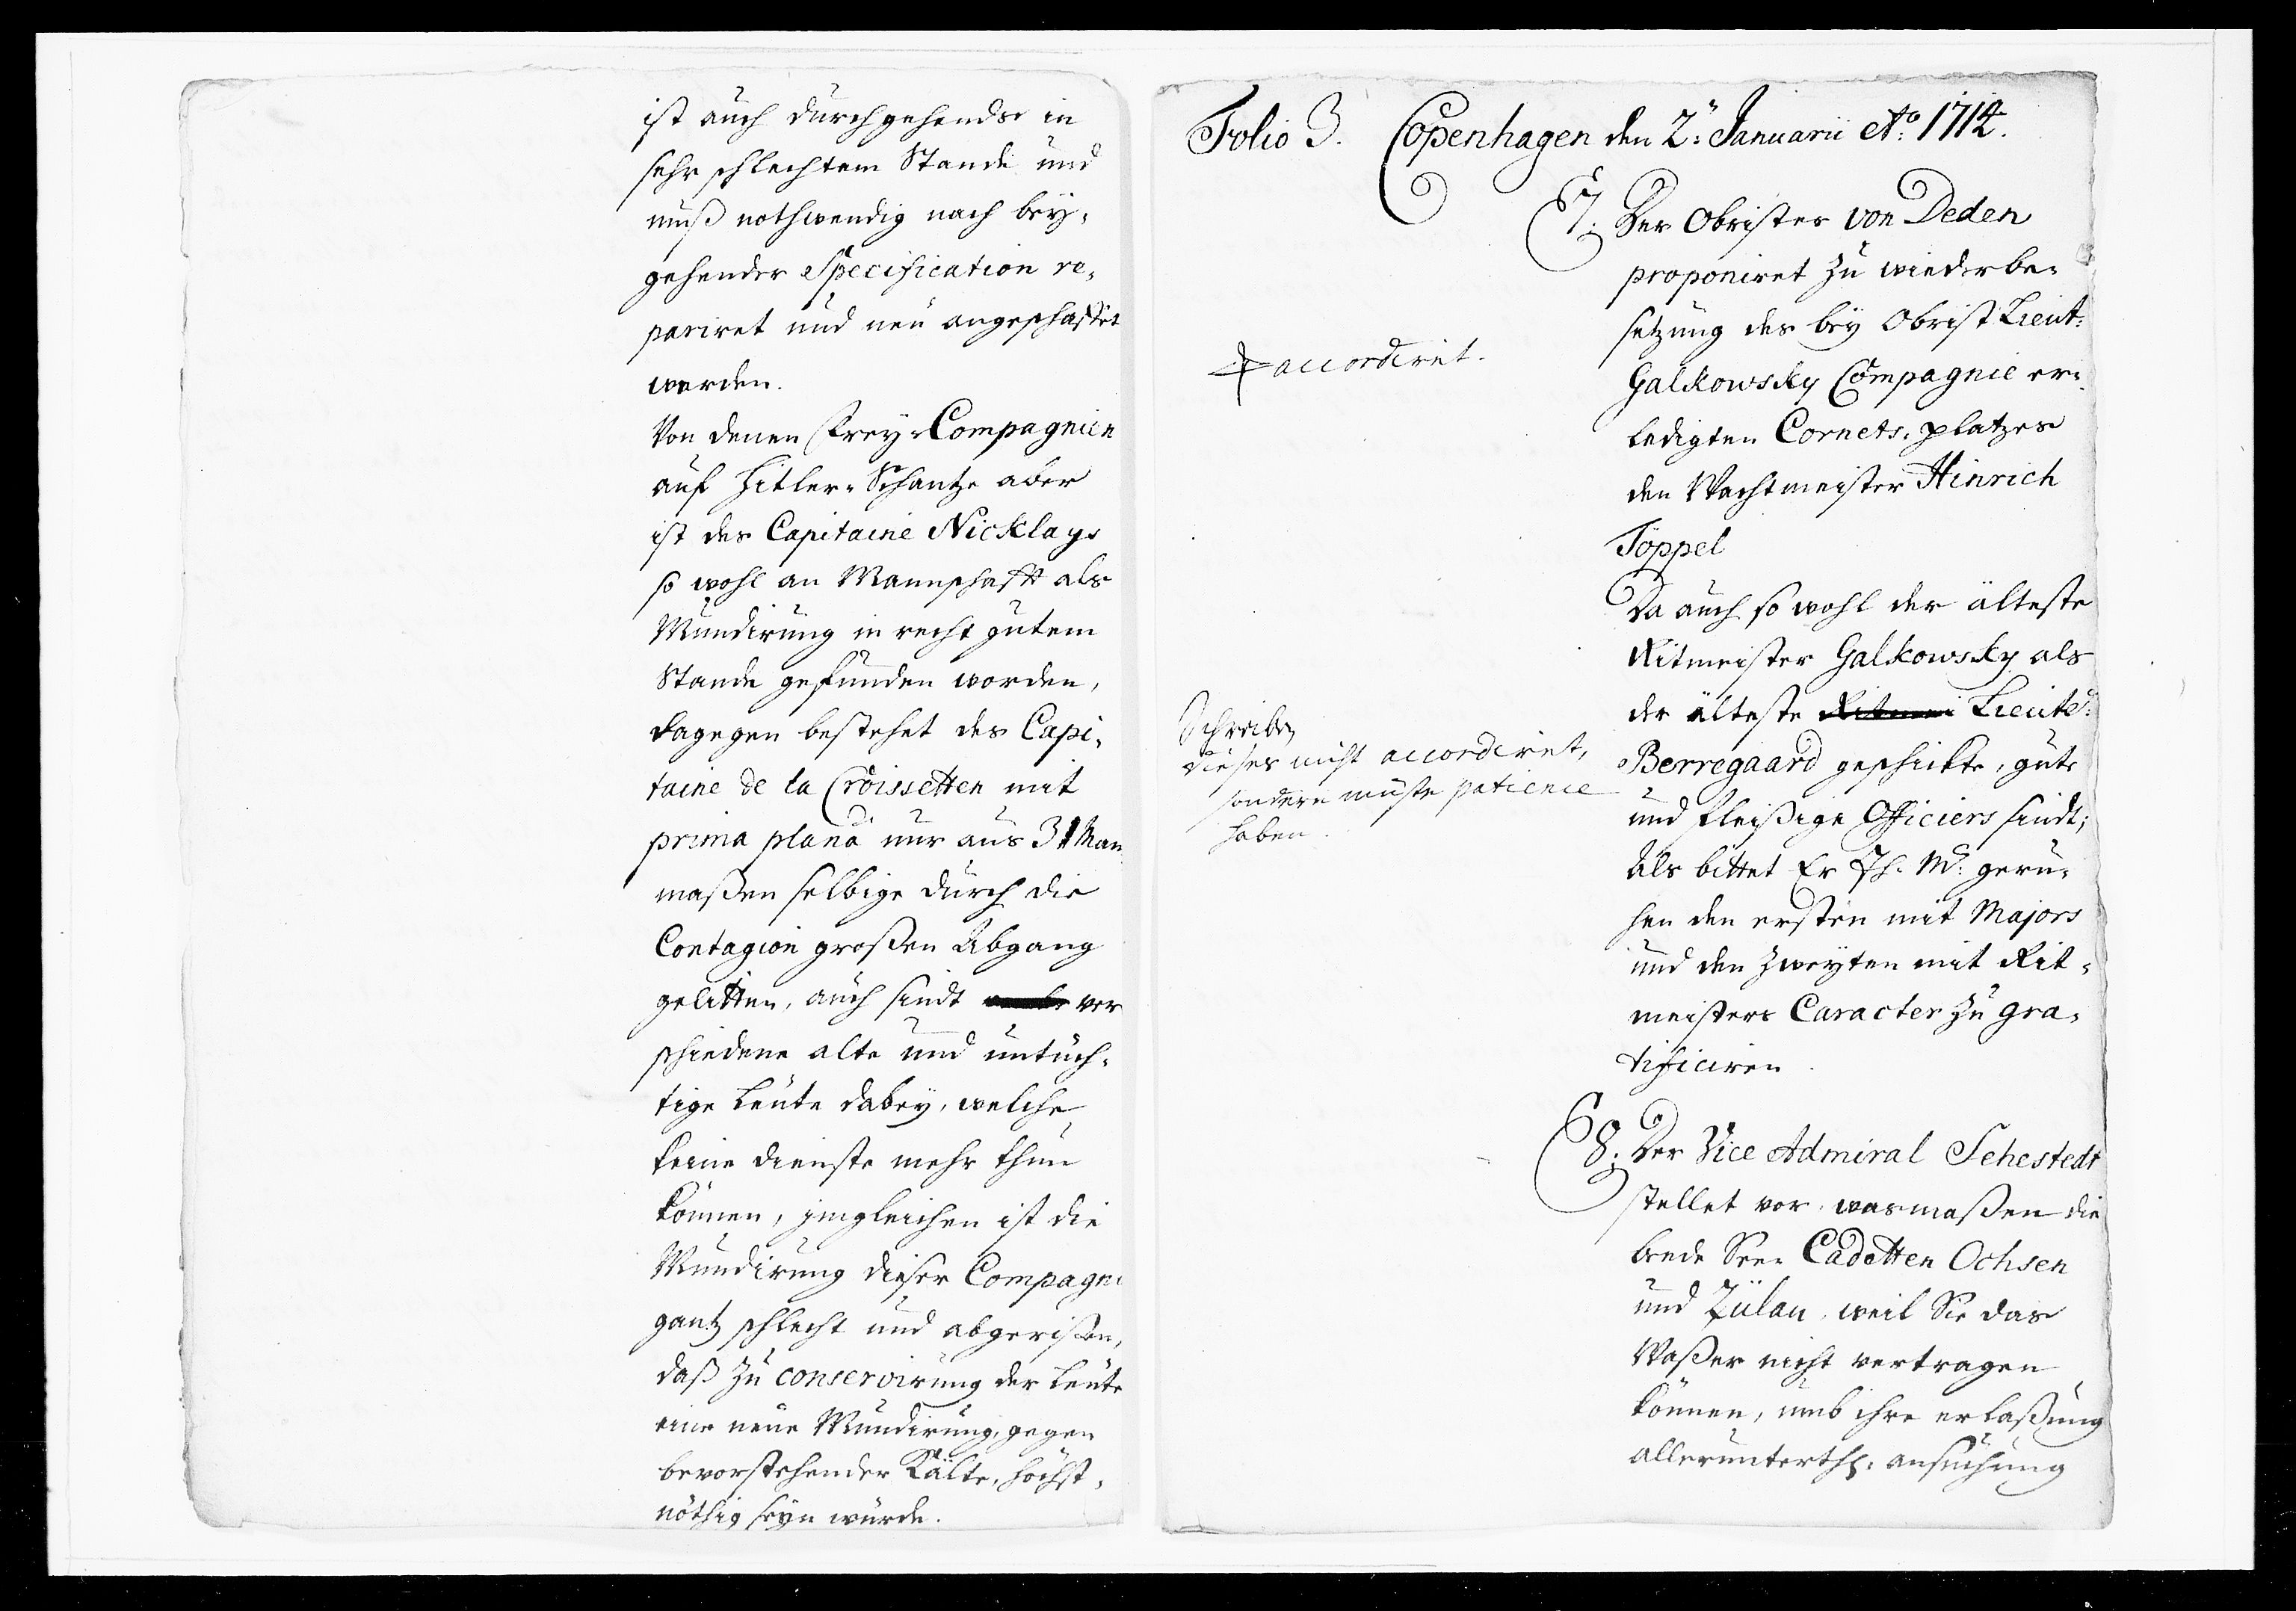 ist auch durchgehends in
sehr schlechtem Stande und
muß nothwendig nach bey-
gehender Specification re-
pariret und neu angeschaffet
werden.
Von denen Frey-Compagnien
auf Hitler-Schantze aber
ist des Capitaine Nicklays
so wohl an Mannschafft als
Mundirung in recht gutem
Stande gefunden worden,
dagegen bestehet des Capi-
taine de la Croissetten mit
prima plana nur aus 31 Man
maßen selbige durch die
Contagion großen Abgang
gelitten, auch sindt ver
schiedene alte und untüch-
tige Leute dabey, welche
keine dienste mehr thun
können, imgleichen ist die
Mundirung dieser Compagni
gantz schlecht und abgerißen,
daß zu conservirung der Leute
eine neue Mundirung, gegen
bevorstehender Kälte, höchst-
nöthig seyn würde.
Folio 3. Copenhagen den 2: Januarii Ao: 1712.
7. Der Obrister von Deden
proponiret zu wiederbe-
setzung des bey Obrist Lieut:
Galkowsky Compagnie er-
ledigten Cornets, platzes
den Wachtmeister Hinrich
Töppel
accordiret.
Da auch so wohl der älteste
Ritmeister Galkowsky als
der älteste Ritmei Lieute:
Berregaard geschickte, gute
und fleißige Officiers sindt;
Als bittet Er Ih. M: geru-
hen den ersten mit Majors
und den zweyten mit Rit-
meisters Caracter zu gra-
tificiren.
Schreiben
dieses nicht accordiret,
sondern müste patience
haben.
8. Der Vice Admiral Sehestedt
stellet vor, wasmaßen die
beede See-Cadetten Ochsen
und Zülau, weil Sie das
Waßer nicht vertragen
können, umb ihre erlaßung
allerunterth: ansuchung